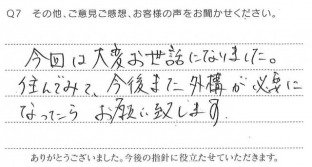 Q7 その他、ご意見ご感想、お客様の声をお聞かせください。
今回は大変お世話になりました。
住んでみて、今後また外構が必要に
なってたら お願い致します。
ありがとうございました。今後の指針に役立たせていただきます。